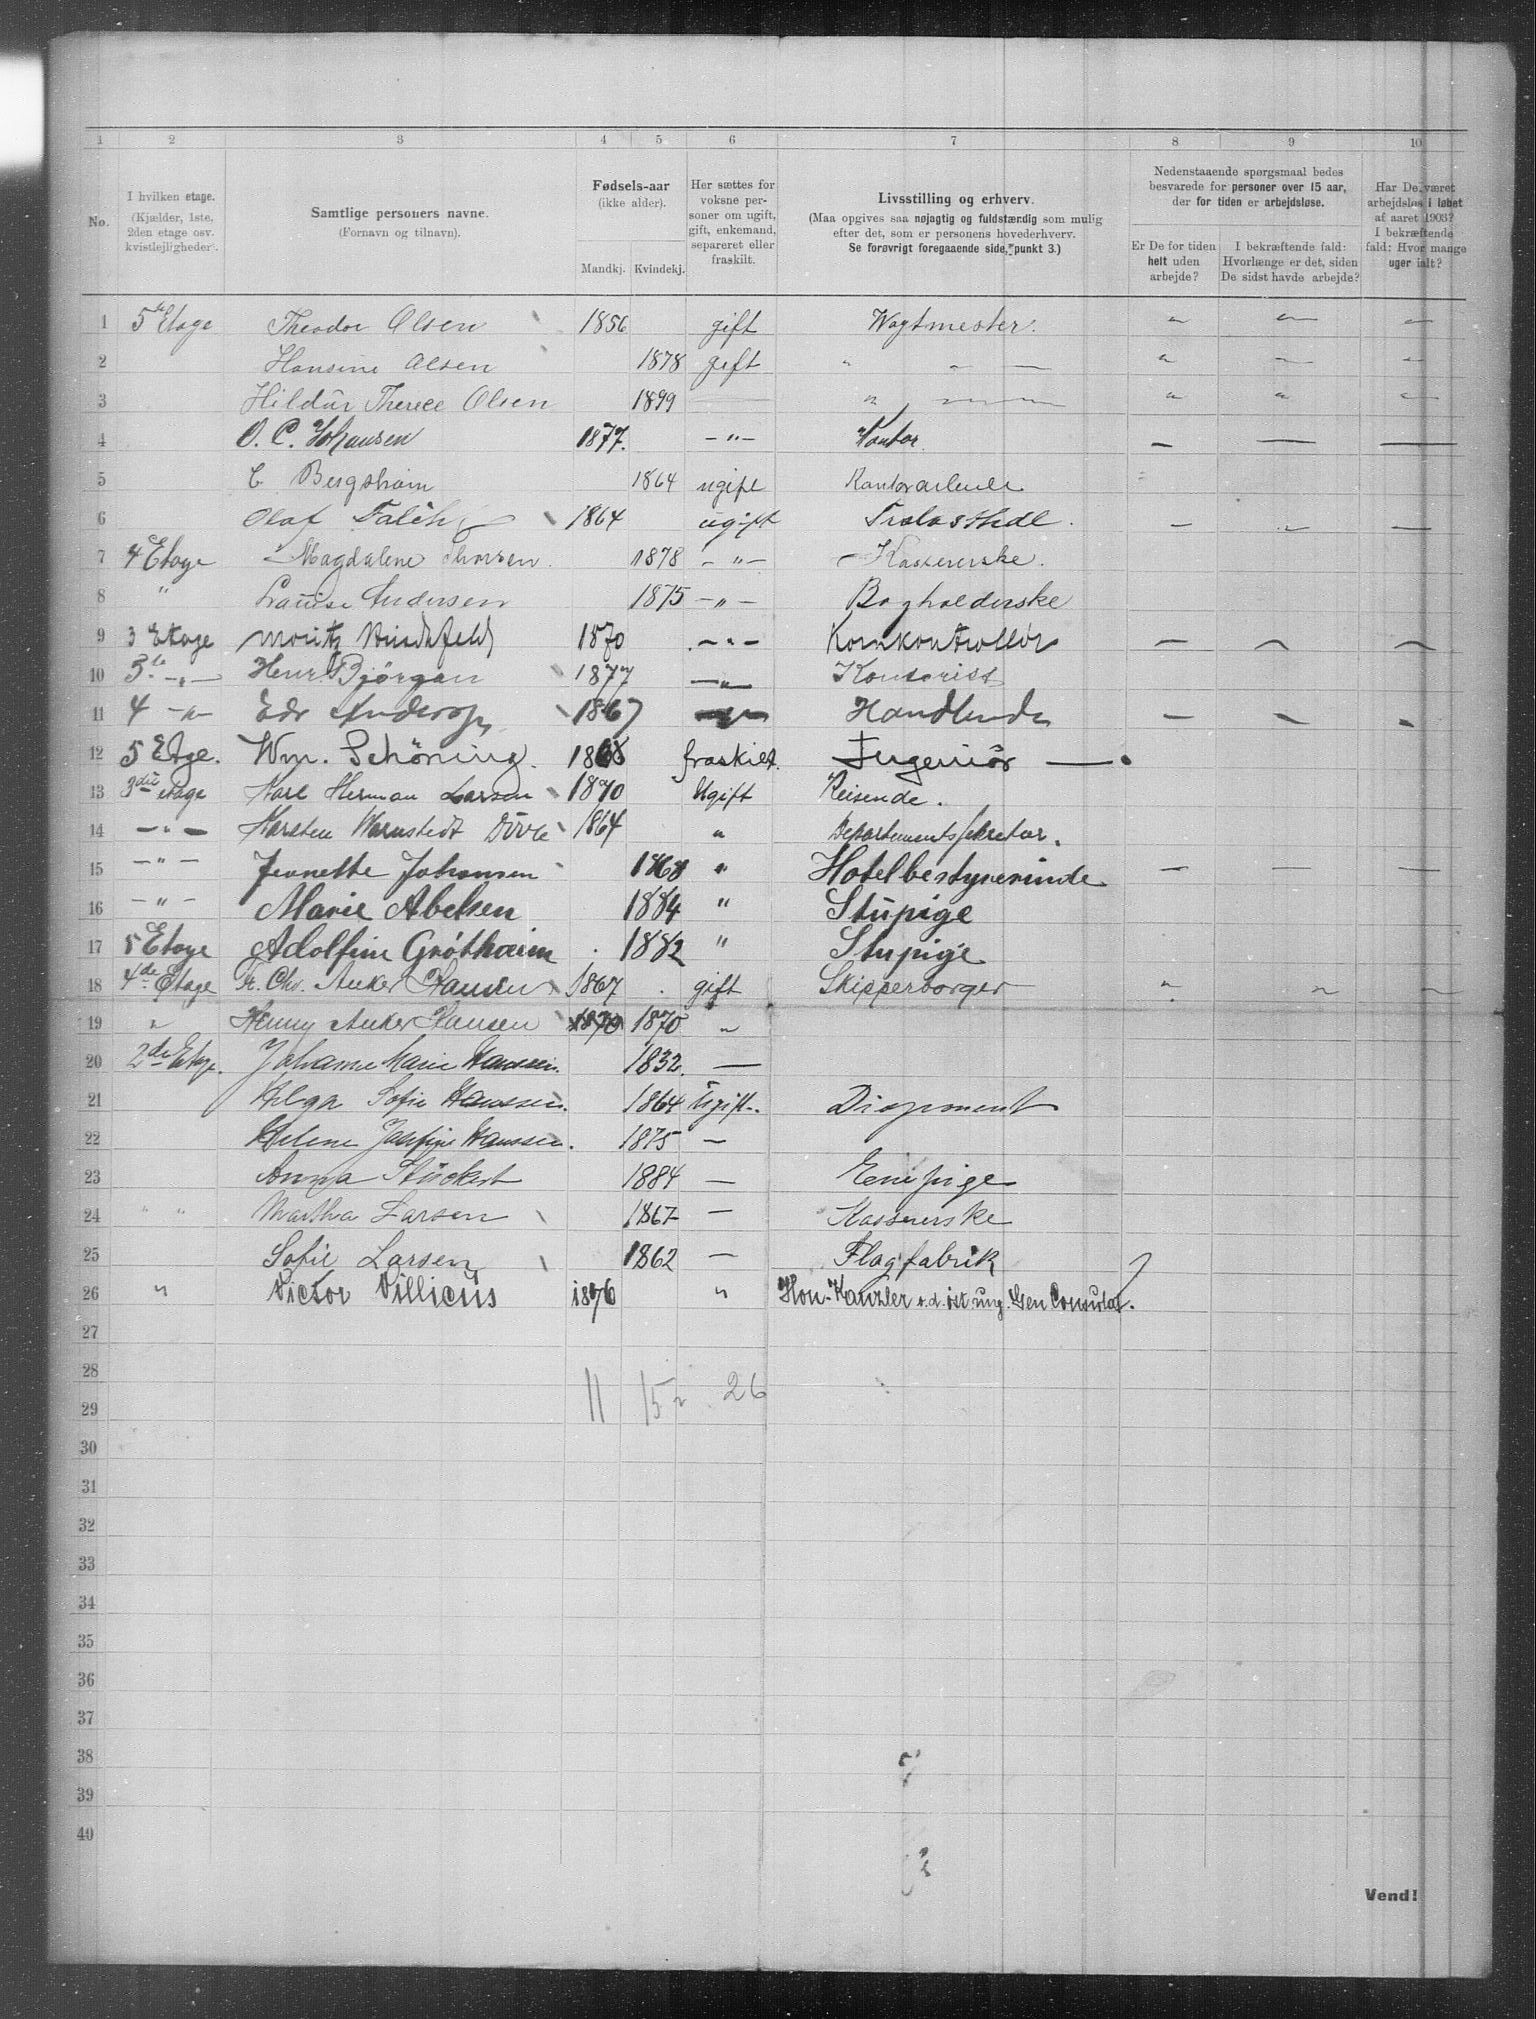 1 2 3 4 5 6 7 8 9 10
No.
I hvilken etage. (Kjælder, 1ste, 2den etage osv. kvistlejligheder).
Samtlige personers navne. (Fornavn og tilnavn).
Fødsels-aar (ikke alder).
Mandkj. Kvindekj.
Her sættes for voksne personer om ugift, gift, enkemand, separeret eller fraskilt.
Livsstilling og erhverv.
(Maa opgives saa nøjagtig og fuldstændig som mulig efter det, som er personens hovederhverv. Se forøvrigt foregaaende side, punkt 3.)
Nedenstaaende spørgsmaal bedes besvarede for personer over 15 aar, der for tiden er arbejdsløse.
Er De for tiden helt uden arbejde?
I bekræftende fald: Hvorlænge er det, siden De sidst havde arbejde?
Har De været arbejdsløs i løbet af aaret 1903? I bekræftende fald: Hvor mange uger ialt?
1 5te Etage Theodor Olsen 1856 gift Vagtmester. " " "
2 Hansine Olsen 1878 gift " " — " — "
3 Hildur Therece Olsen 1899 — " " " "
4 O. C. Johansen 1877. — " — Kontor. — — —
5 C Bergshain 1864 ugift
6 Olaf Falch 1864 ugift — " —
7 4 Etage Magdalene Thorsen. 1878 — " — Kassererske.
8 " Louise Andersen 1875 — " — Bogholderske
9 3 Etage Moritz 1870 — " — Kornkontrollør — — —
10 3. — " — Henr. Bjørgan 1877 — " — Kontorist
11 4 — " Edv Anderson 1867 — " — Handlende — — —
12 5 Etge. Wm. Schöning. 1868 fraskilt. Ingeniör — .
13 3die etage Karl Herman Larsen 1870 Ugift Reisende.
14 — " — Karsten Warnstedt 1864 " Departementssekretær.
15 — " — Jeanette Johansen 1868 " Hotelbestyrerinde — — —
16 — " — Marie Abelsen 1884 " Stupige
17 5 Etage Adolfine Gróthaim 1882 " Stupige
18 4de Etage Fr. Chr. Anker Hansen 1867 gift Skipperborger " " "
19 " Henny Anker Hansen 1870 1870 "
20 2de Etage. Johanne Marie Hanssen. 1832. —
21 Helga Sofie Hanssen. 1864 Ugift. Disponent
22 Helene Josefine Hanssen. 1875 —
23 Anna 1884 — Enepige
24 " " Martha Larsen 1867 — Kassererske
25 Sofie Larsen 1862 — Flagfabrik
26 " Victor Villicus 1876 " Hon. Kanzler v. d. öst ung. Gen Consulat.
27
28
11 15 26
29
30
31
32
33
34
35
36
37
38
39
40
Vend!